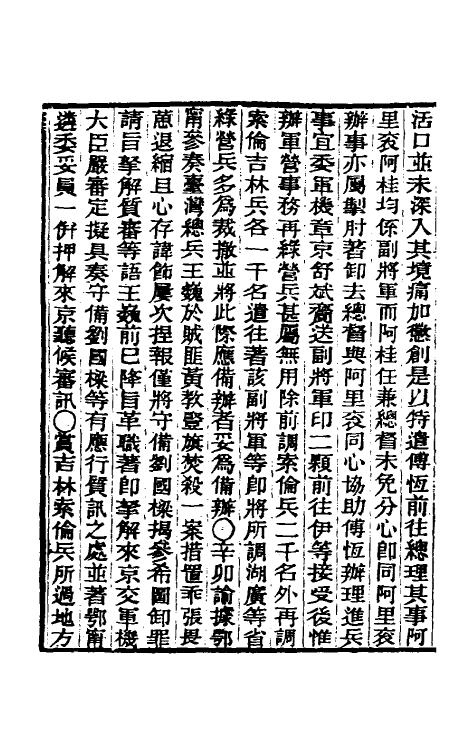 活口並未深入其境痛加懲創是以特遣傅恆前往總理其事阿
里袞阿桂均係副將軍而阿桂任兼總督未免分心卽同阿里袞
辦事亦屬掣肘著卸去總督與阿里袞同心協助傅恆辦理進兵
事宜委軍機章京舒斌齎送副將軍印二顆前往伊等接受後惟
辦軍營事務再綠營兵甚屬無用除前調索倫兵二千名外再調
索倫吉林兵各一千名遣往著該副將軍等卽將所調湖廣等省
綠營兵多爲裁撤並將此際應備辦者妥爲備辦○辛卯諭據鄂
甯參奏臺灣總兵王巍於賊匪黃教豎旗焚殺一案措置乖張畏
葸退縮且心存諱飾屢次捏報僅將守備劉國樑揭參希圖卸罪
請旨拏解質審等語王巍前已降旨革職著卽拏解來京交軍機
大臣嚴審定擬具奏守備劉國樑等有應行質訊之處並著鄂甯
遴委妥員一併押解來京聽候審訊○賞吉林索倫兵所過地方